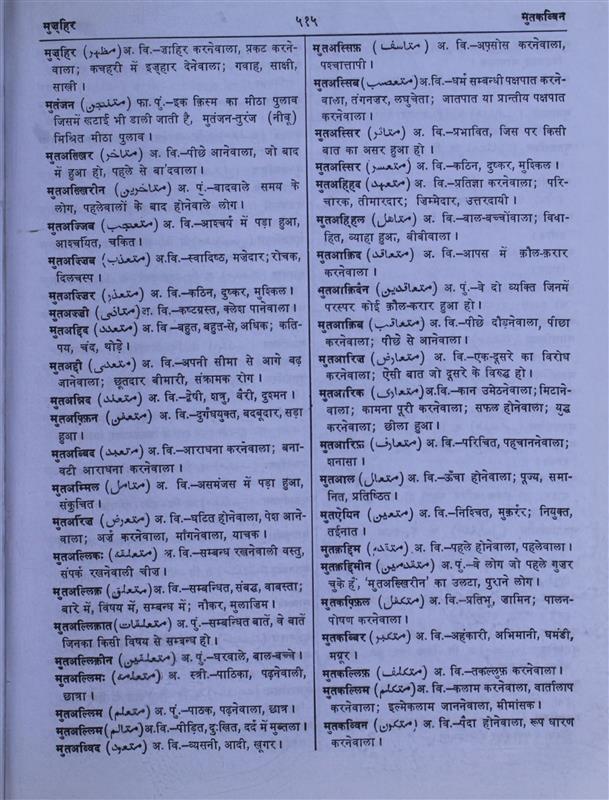 मुज़्हिर
५१५
मुतकव्विन
मुज़्हिर (مظهر) अ. वि.–ज़ाहिर करनेवाला, प्रकट करने-
वाला; कचहरी में इज़्हार देनेवाला; गवाह, साक्षी,
साखी।
मुतंजन (متنجن) फा. पुं.–इक क़िस्म का मीठा पुलाव
जिसमें खटाई भी डाली जाती है, मुतंजन-तुरंज (नीबू)
मिश्रित मीठा पुलाव।
मुतअख्खिर (متاخر) अ. वि.–पीछे आनेवाला, जो बाद
में हुआ हो, पहले से बा'दवाला।
मुतअख्खिरीन (متاخرين) अ. पुं.–बादवाले समय के
लोग, पहलेवालों के बाद होनेवाले लोग।
मुतअज्जिब (متعجب) अ. वि.–आश्चर्य में पड़ा हुआ,
आश्चयित, चकित।
मुतअज्जिब (متعذب) अ. वि.–स्वादिष्ठ, मज़ेदार; रोचक,
दिलचस्प।
मुतअज्जिर (متعذر) अ. वि.–कठिन, दुष्कर, मुश्किल।
मुतअज़्ज़ी (متاذى) अ. वि.–कष्टग्रस्त, क्लेश पानेवाला।
मुतअद्दिद (متعدد) अ. वि.–बहुत, बहुत-से, अधिक; कति-
पय, चंद, थोड़े।
मुतअद्दी (متعدى) अ. वि.–अपनी सीमा से आगे बढ़
जानेवाला; छूतदार बीमारी, संक्रामक रोग।
मुतअन्निद (متعند) अ. वि.–द्वेषी, शत्रु, वैरी, दुश्मन।
मुतअफ़्फ़िन (متعفن) अ. वि.–दुर्गंधयुक्त, बदबूदार, सड़ा
हुआ।
मुतअब्बिद (متعبد) अ. वि.–आराधना करनेवाला; बना-
वटी आराधना करनेवाला।
मुतअम्मिल (متامل) अ. वि.–असमंजस में पड़ा हुआ,
संकुचित।
मुतअरिज़ (متعرض) अ. वि.–घटित होनेवाला, पेश आने-
वाला; अर्ज़ करनेवाला, मांगनेवाला, याचक।
मुतअल्लिकः (متعلقه) अ. वि.–सम्बन्ध रखनेवाली वस्तु,
संपर्क रखनेवाली चीज।
मुतअल्लिक़ (متعلق) अ. वि.–सम्बन्धित, संबद्ध, वाबस्ता;
बारे में, विषय में, सम्बन्ध में; नौकर, मुलाज़िम।
मुतअल्लिक़ात (متعلقات) अ. पुं.–सम्बन्धित बातें, वे बातें
जिनका किसी विषय से सम्बन्ध हो।
मुतअल्लिक़ीन (متعلقين) अ. पुं.–घरवाले, बाल-बच्चे।
मुतअल्लिमः (متعلمه) अ. स्त्री.–पाठिका, पढ़नेवाली,
छात्रा।
मुतअल्लिम (متعلم) अ. पुं.–पाठक, पढ़नेवाला, छात्र।
मुतअल्लिम (متالم) अ. वि.–पीड़ित, दुःखित, दर्द में मुब्तला।
मुतअव्विद (متعود) अ. वि.–व्यसनी, आदी, खूगर।
मुतअस्सिफ़ (متاسف) अ. वि.–अफ़्सोस करनेवाला,
पश्चात्तापी।
मुतअस्सिब (متعصب) अ. वि.–धर्म सम्बन्धी पक्षपात करने-
वाला, तंगनज़र, लघुचेता; जातपात या प्रान्तीय पक्षपात
करनेवाला।
मुतअस्सिर (متاثر) अ. वि.–प्रभावित, जिस पर किसी
बात का असर हुआ हो।
मुतअस्सिर (متعسر) अ. वि.–कठिन, दुष्कर, मुश्किल।
मुतअह्हिद (متعهد) अ. वि.–प्रतिज्ञा करनेवाला; परि-
चारक, तीमारदार; ज़िम्मेदार, उत्तरदायी।
मुतअह्हिल (متاهل) अ. वि.–बाल-बच्चोंवाला; विवा-
हित, ब्याहा हुआ, बीबीवाला।
मुतआक़िद (متعاقد) अ. वि.–आपस में क़ौल-क़रार
करनेवाला।
मुतआक़िदैन (متعاقدين) अ. पुं.–वे दो व्यक्ति जिनमें
परस्पर कोई क़ौल-करार हुआ हो।
मुतआक़िब (متعاقب) अ. वि.–पीछे दौड़नेवाला, पीछा
करनेवाला; पीछे से आनेवाला।
मुतआरिज़ (متعارض) अ. वि.–एक-दूसरे का विरोध
करनेवाला; ऐसी बात जो दूसरे के विरुद्ध हो।
मुतआरिक अ. वि.–कान उमेठनेवाला; मिटाने-
वाला; कामना पूरी करनेवाला; सफल होनेवाला; युद्ध
करनेवाला; छीला हुआ।
मुतआरिफ़ (متعارف) अ. वि.–परिचित, पहचाननेवाला;
शनासा।
मुतआल (متعال) अ. वि.–ऊँचा होनेवाला; पूज्य, समा-
नित, प्रतिष्ठित।
मुतऐयिन (متعين) अ. वि.–निश्चित, मुक़र्रर; नियुक्त,
तईनात।
मुतक़द्दिम (متقدم) अ. वि.–पहले होनेवाला, पहलेवाला।
मुतक़द्दिमीन (متقدمين) अ. पुं.–वे लोग जो पहले गुज़र
चुके हैं, 'मुतअख्खिरीन' का उलटा, पुराने लोग।
मुतकफ़्फ़िल (متكفل) अ. वि.–प्रतिभू, ज़ामिन; पालन-
पोषण करनेवाला।
मुतकब्बिर (متكبر) अ. वि.–अहंकारी, अभिमानी, घमंडी,
मग़्रूर।
मुतकल्लिफ़ (متكلف) अ. वि.–तकल्लुफ़ करनेवाला।
मुतकल्लिम (متكلم) अ. वि.–कलाम करनेवाला, वार्तालाप
करनेवाला; इल्मेकलाम जाननेवाला, मीमांसक।
मुतकव्विन (متكون) अ. वि.–पैदा होनेवाला, रूप धारण
करनेवाला।